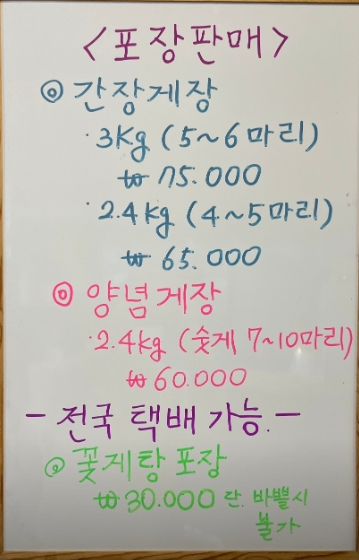 <포장판매>
◎ 간장게장
·3Kg (5~6마리)
₩ 75.000
·2.4kg (4~5마리)
₩ 65.000
◎ 양념게장
·2.4kg (숫게 7~10마리)
₩ 60.000
- 전국 택배 가능. -
◎ 꽃게탕 포장
₩ 30.000 단. 바쁠시
불가